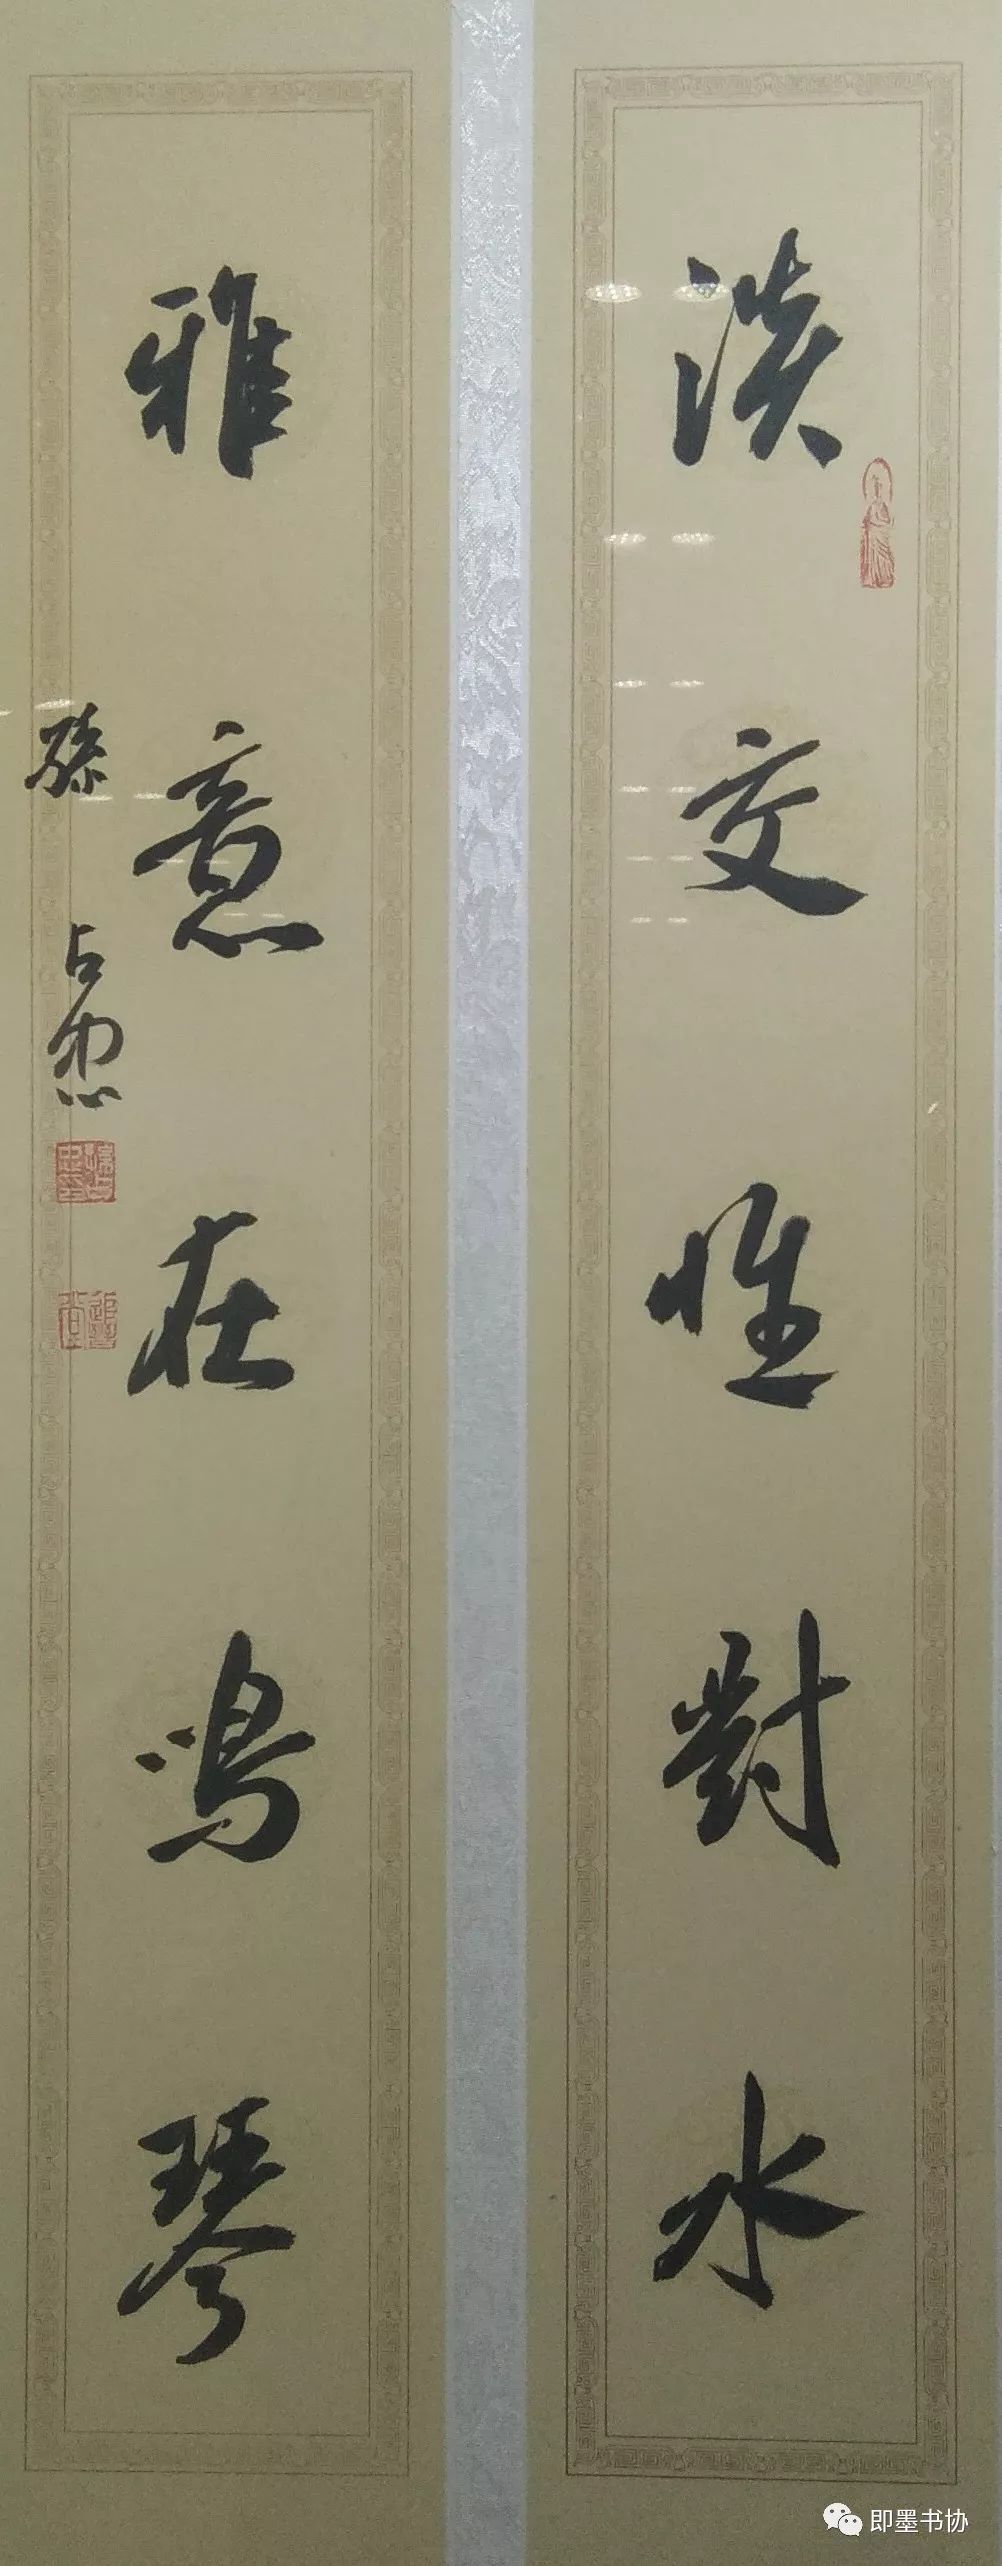 淡交惟對水
雅意在鳴琴
孫占忠
即墨书协